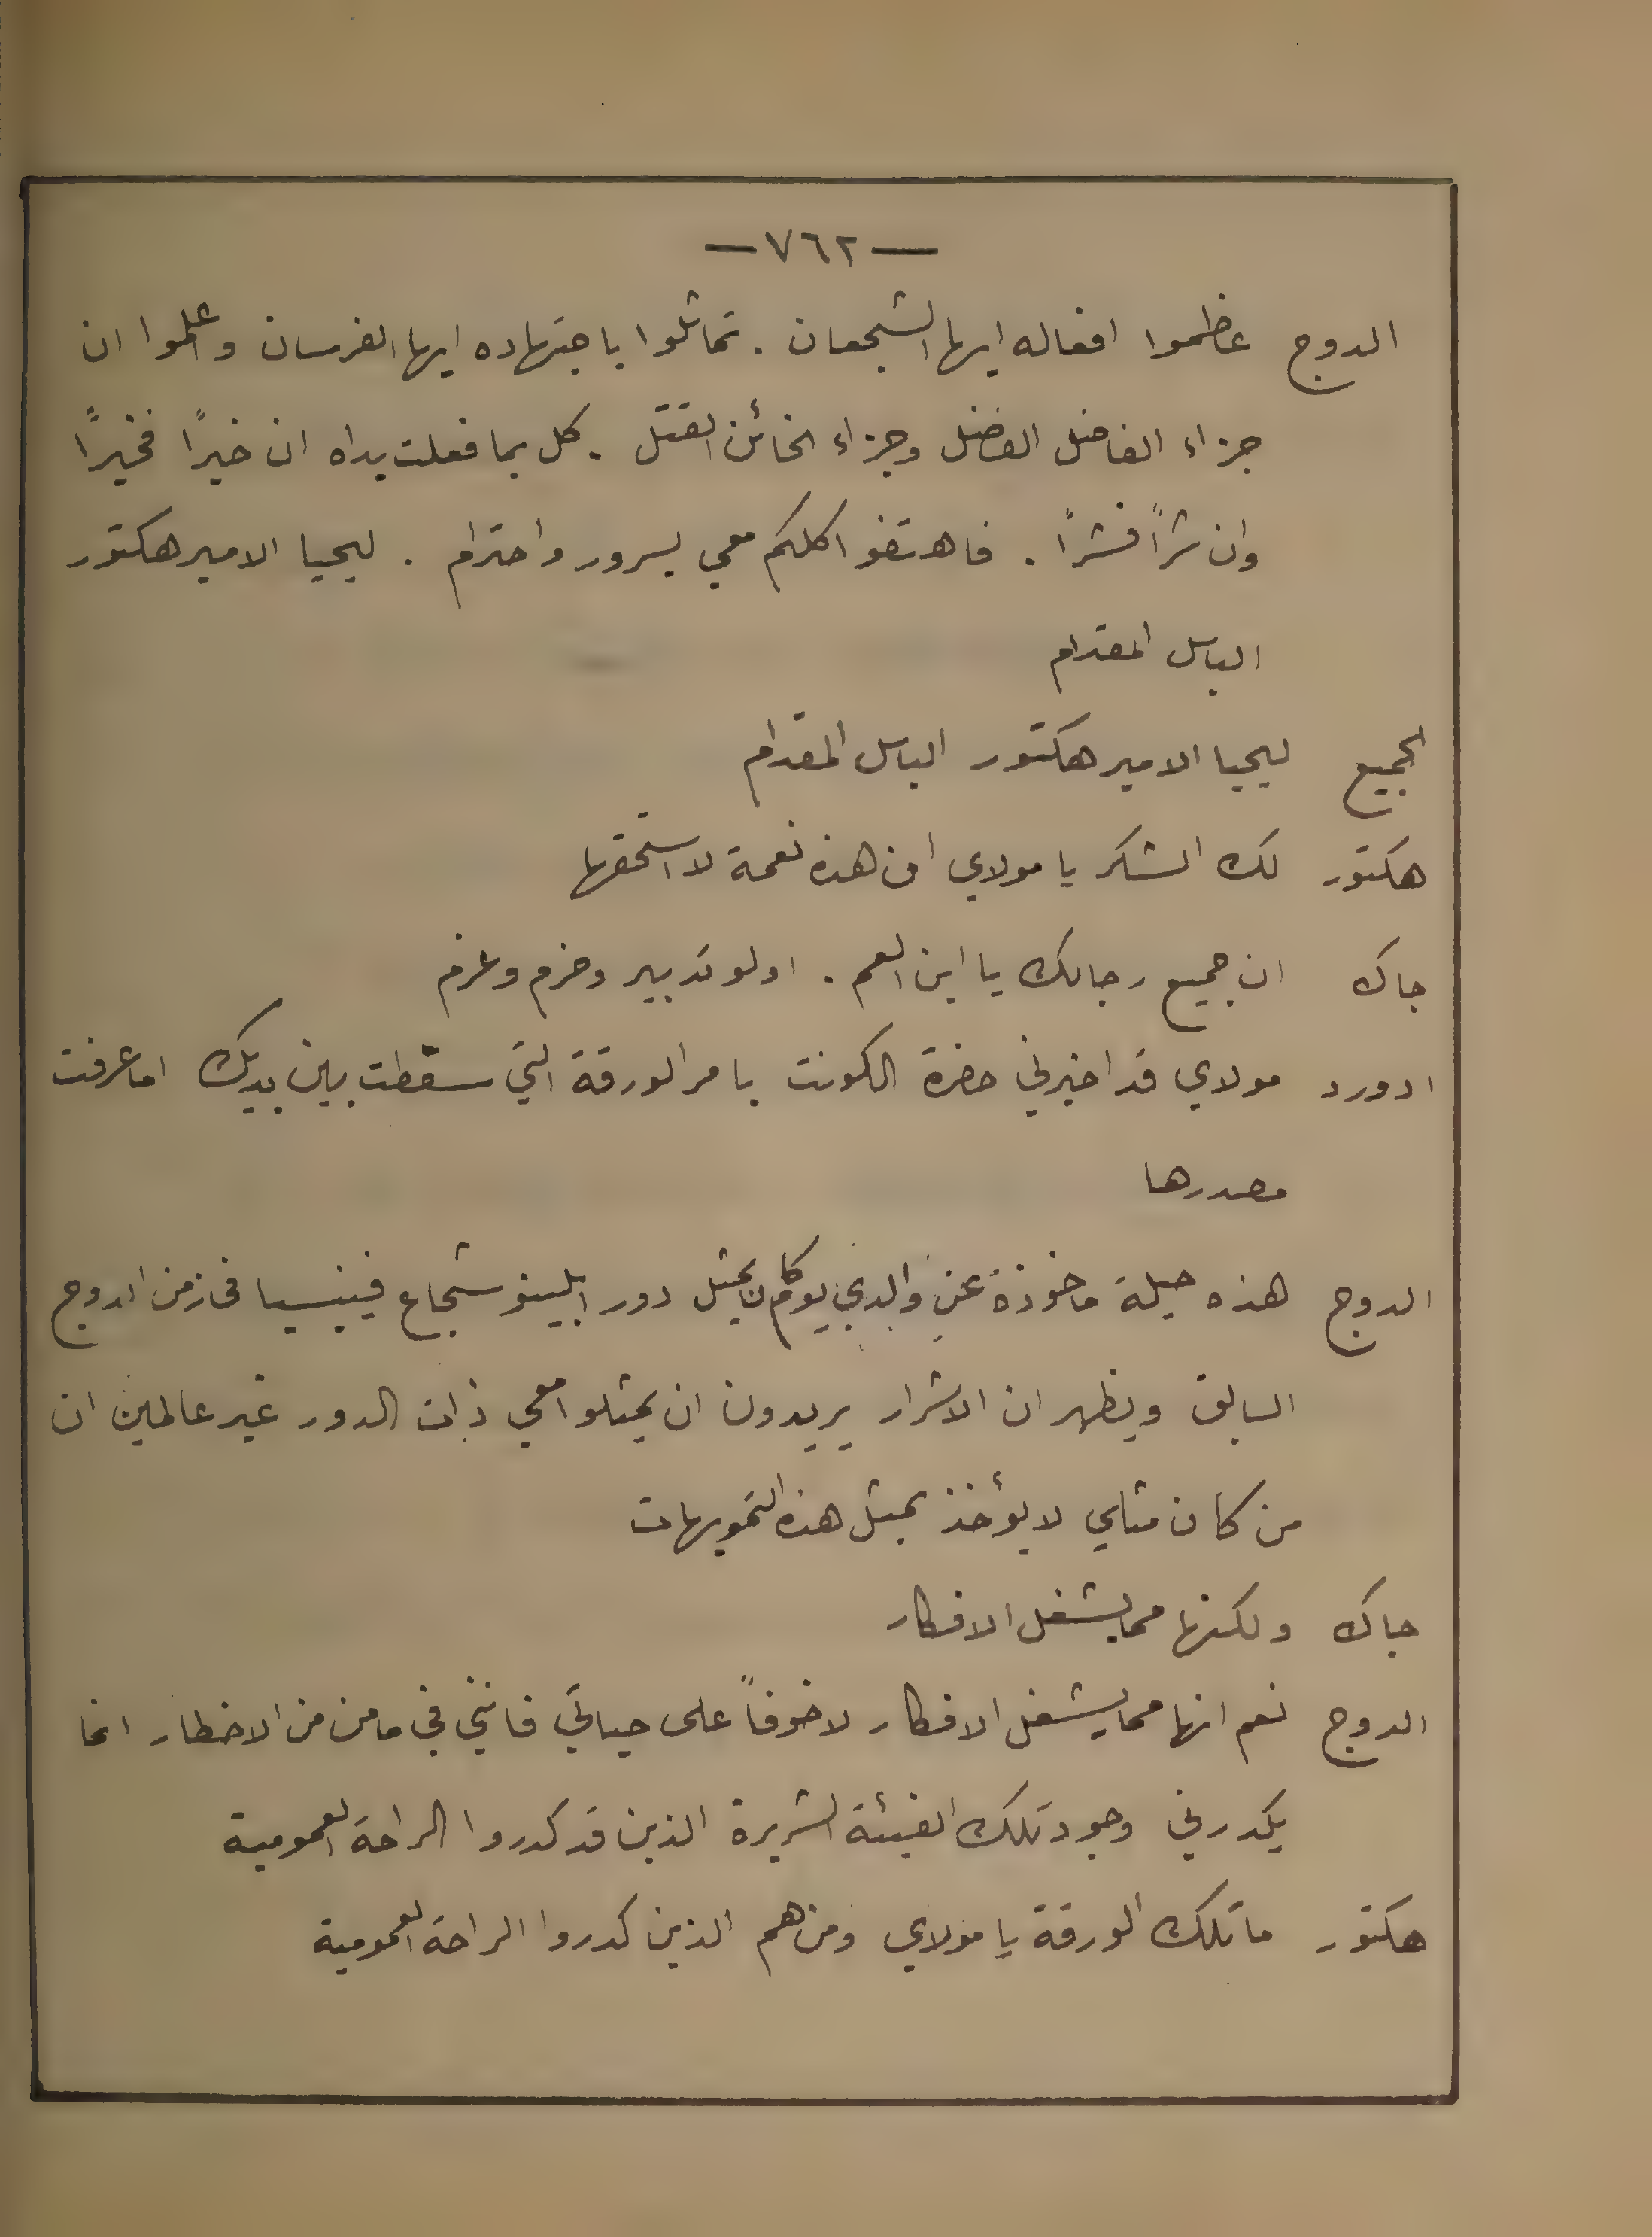 — ٧٦٢ —
الدوج عظموا افعاله ايها الشجعان . تماثلوا باجتهاده ايها الفرسان واعلموا ان
جزاء الفاضل الفضل وجزاء الخائن القتل . كل بما فعلت يداه ان خيرًا فخيرًا
وان شرًا فشرًا . فاهتفوا كلكم معي بسرور واحترام . ليحيا الامير هكتور
الباسل المقدام
الجميع ليحيا الامير هكتور الباسل المقدام
هكتور لك الشكر يا مولاي ان هذه نعمة لا استحقها
جاك ان جميع رجالك يا ابن العم . اولو تدبير وحزم وعزم
ادورد مولاي قد اخبرني حضرة الكونت بامر الورقة التي سقطت بين يديك اما عرفت
مصدرها
الدوج هذه حيلة ماخوذة عن والدي يوم كان يمثل دور ابلينو شجاع فينيسيا في زمن الدوج
السابق ويظهر ان الاشرار يريدون ان يمثلوا معي ذات الدور غير عالمين ان
من كان مثلي لا يؤخذ بمثل هذه التمويهات
جاك ولكنها مما يشغل الافكار
الدوج نعم انها مما يشغل الافكار لا خوفاً على حياتي فانني في مامن من الاخطار انما
يكدرني وجود تلك الفيئة الشريرة الذين قد كدروا الراحة العمومية
هكتور ما تلك الورقة يا مولاي ومن هم الذين كدروا الراحة العمومية